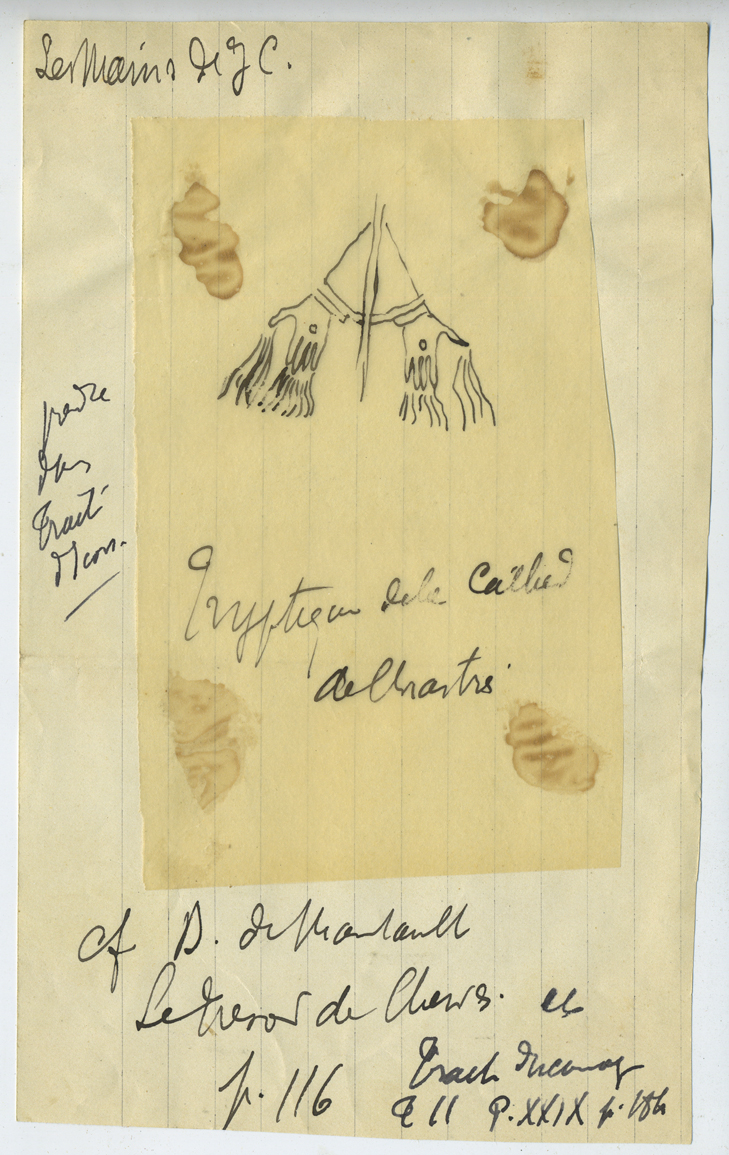 Les Mains de J C.
prendre
dans
Traité
d'Icon.
Tryptique de la Cathed
de Chartres
cf B. de Montault
Le tresor de Chartres. et
p. 116
Traité d'iconog
T II P. XXIX p.